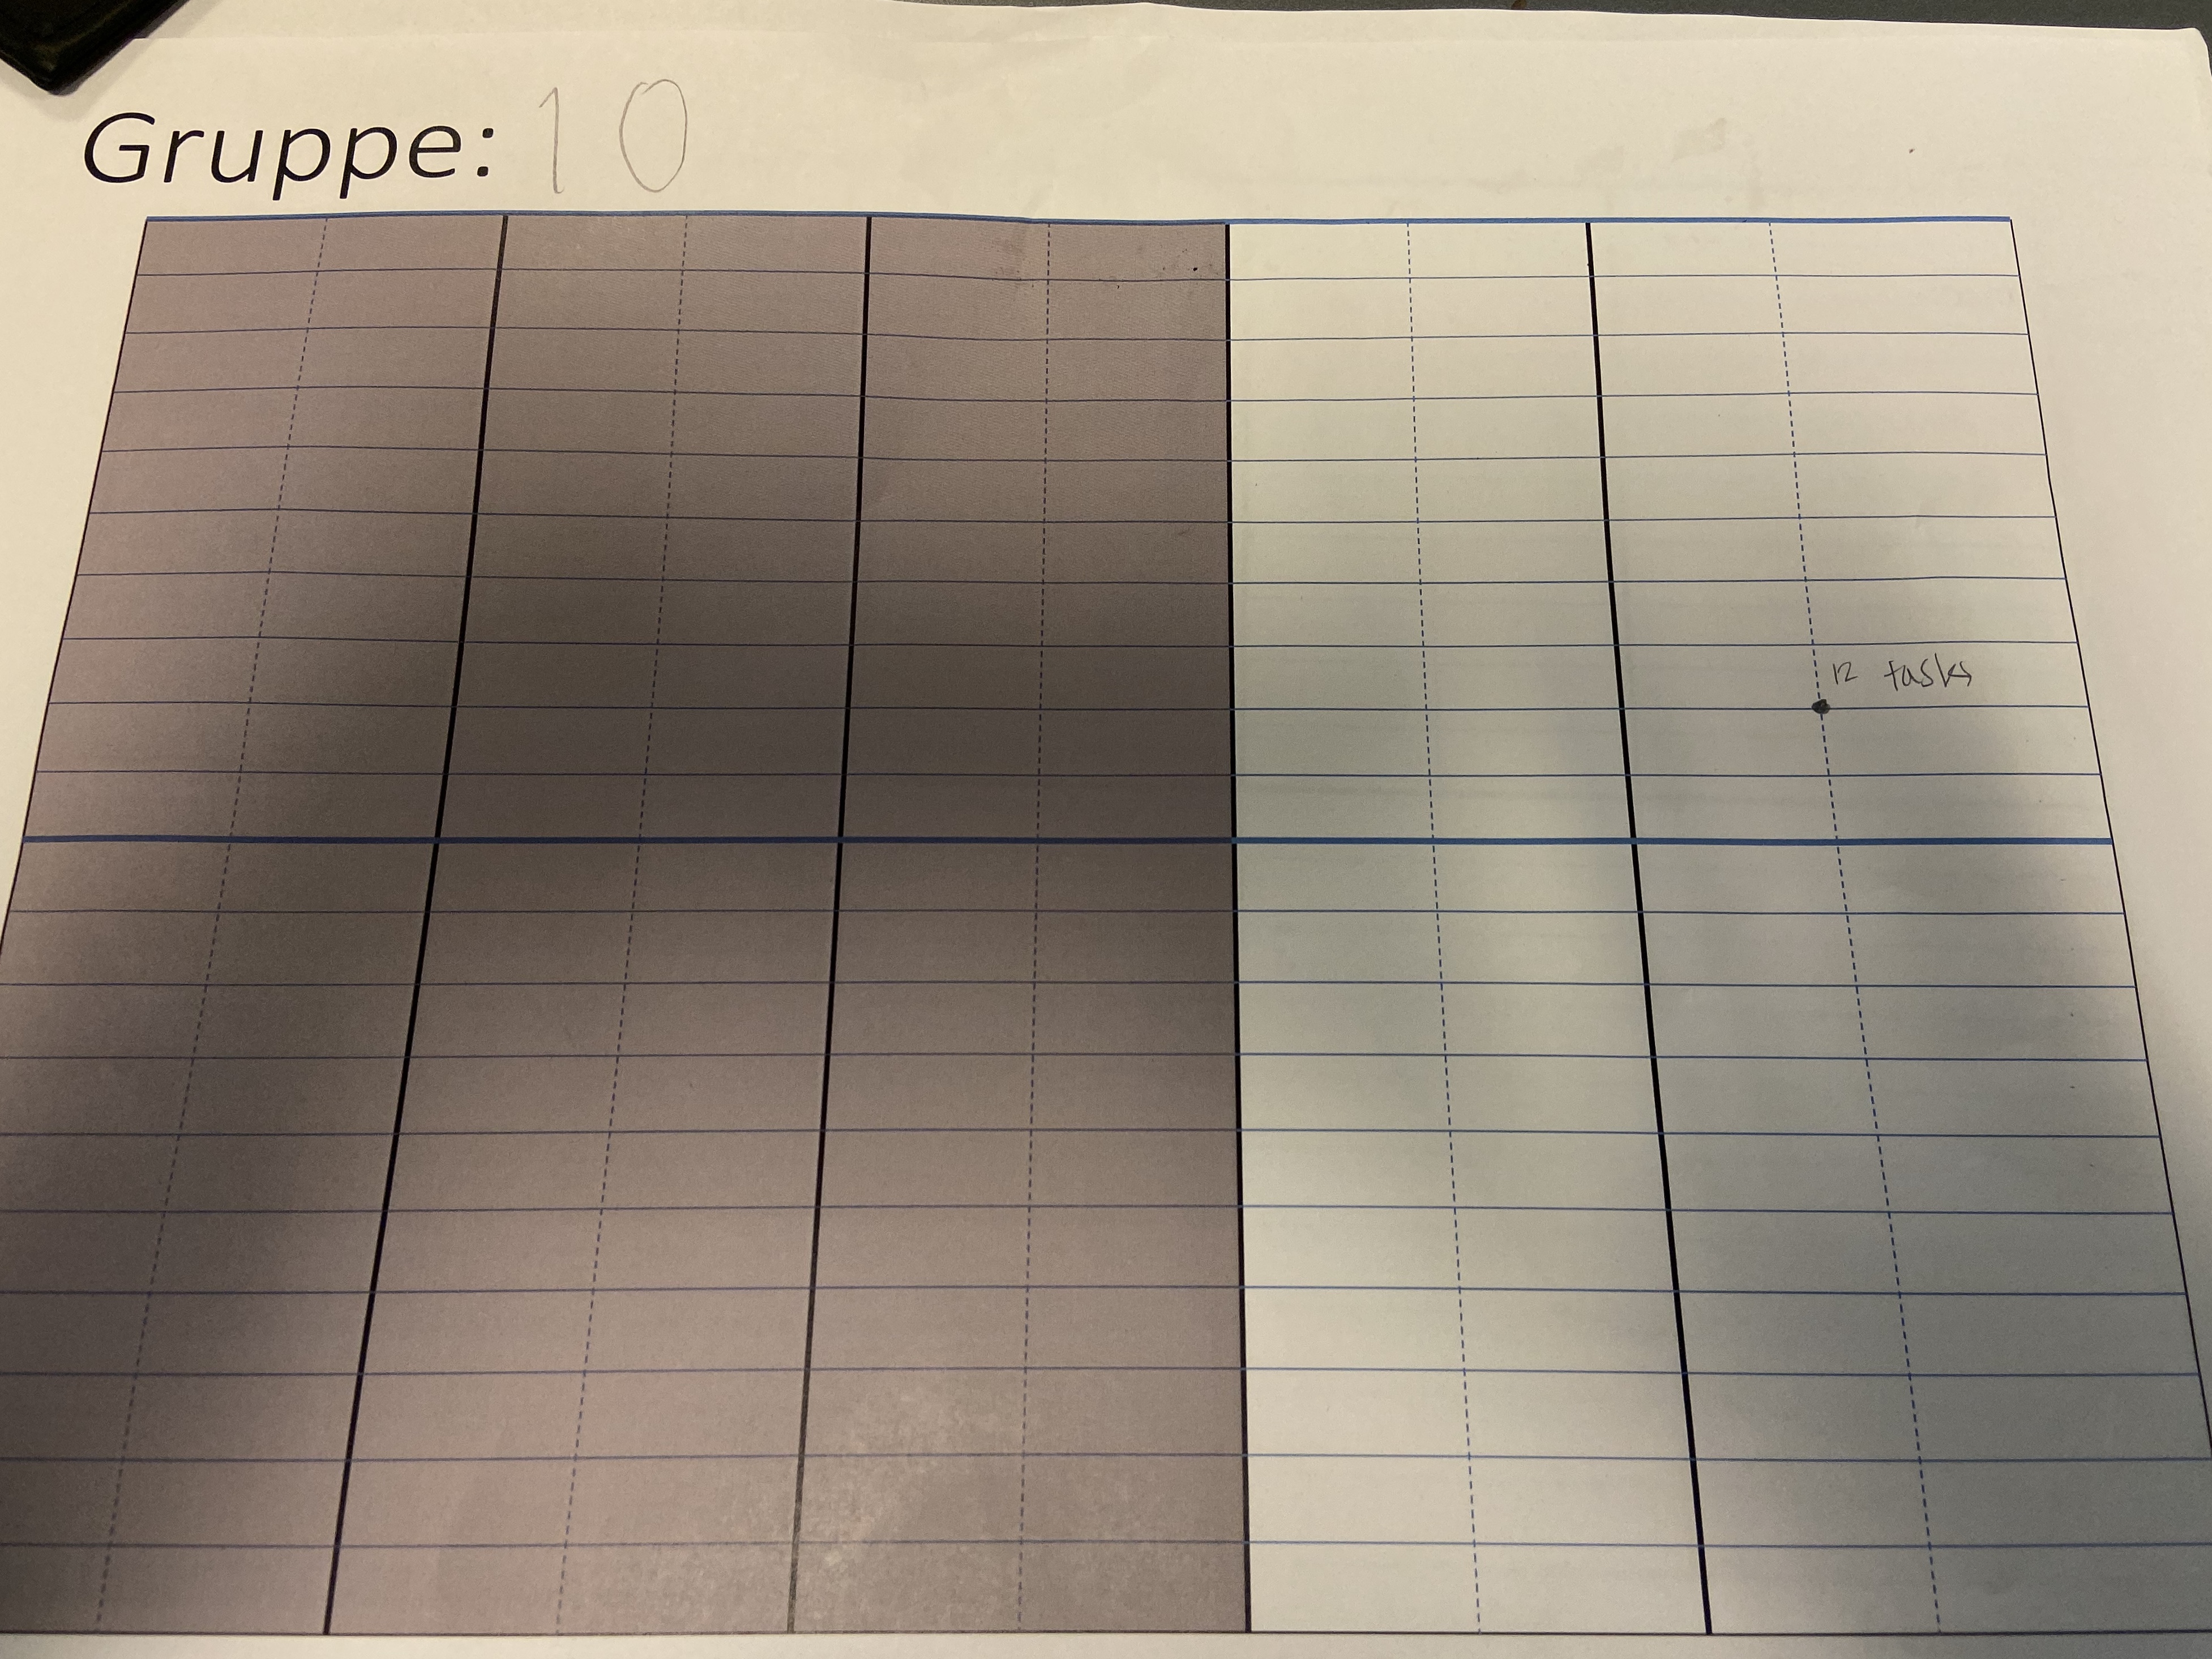 Gruppe: 10
12 tasks